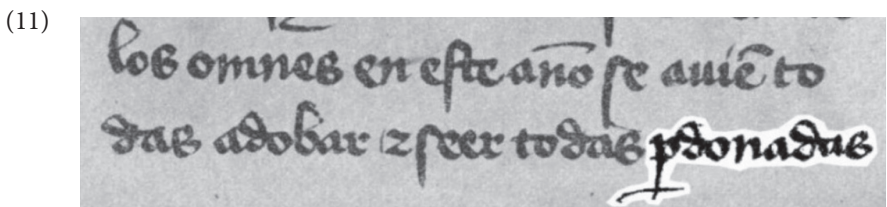 (11)
los omnes en este año se auiē to
das adobar ⁊ seer todas ꝑdonadas